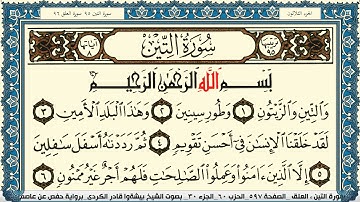 الجزء الثلاثون
سورة التين ٩٥ سورة العلق ٩٦
سُورَةُ التِّينِ
آياتها ٨
بِسْمِ اللَّهِ الرَّحْمَٰنِ الرَّحِيمِ
وَالتِّينِ وَالزَّيْتُونِ ١ وَطُورِ سِينِينَ ٢ وَهَٰذَا الْبَلَدِ الْأَمِينِ ٣
لَقَدْ خَلَقْنَا الْإِنسَٰنَ فِي أَحْسَنِ تَقْوِيمٍ ٤ ثُمَّ رَدَدْنَٰهُ أَسْفَلَ سَٰفِلِينَ
٥ إِلَّا الَّذِينَ ءَامَنُوا وَعَمِلُوا الصَّٰلِحَٰتِ فَلَهُمْ أَجْرٌ غَيْرُ مَمْنُونٍ ٦
سورة التين ، العلق . الصفحة ٥٩٧ الحزب ٦٠ الجزء ٣٠ . بصوت الشيخ بيشةوا قادر الكردى . برواية حفص عن عاصم